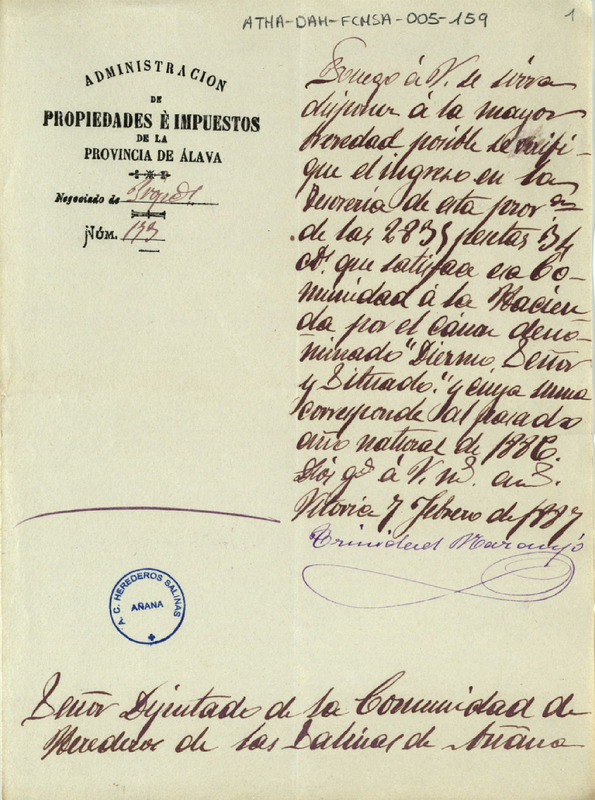 ATHA-DAH-FCMSA-005-159
1
ADMINISTRACION
DE
PROPIEDADES È IMPUESTOS
DE LA
PROVINCIA DE ÁLAVA
Negociado de Propds.
NÚM. 133
Ruego á V. se sirva
disponer á la mayor
brevedad posible se verifi-
que el ingreso en la
Tesorería de esta prov.
de las 2835 pesetas 34
cts. que satisface esa Co-
munidad á la Hacien-
da por el cánon deno-
minado "Diezmo, Señor
y Situado." y cuya suma
corresponde al pasado
año natural de 1886.
Dios gde. á V. ms. as.
Vitoria 7 Febrero de 1887
Trinidad Naranjo
A.C. HEREDEROS SALINAS
AÑANA
Señor Diputado de la Comunidad de
Herederos de las Salinas de Añana